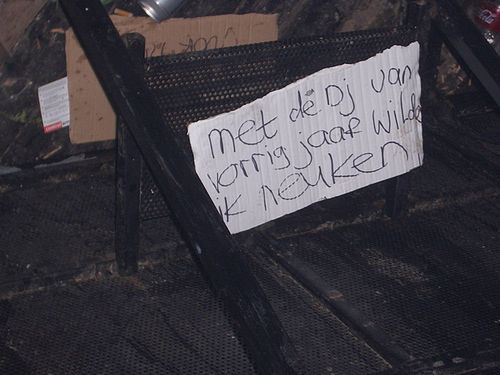 met de Dj van
vorrig jaar wilde
ik neuken